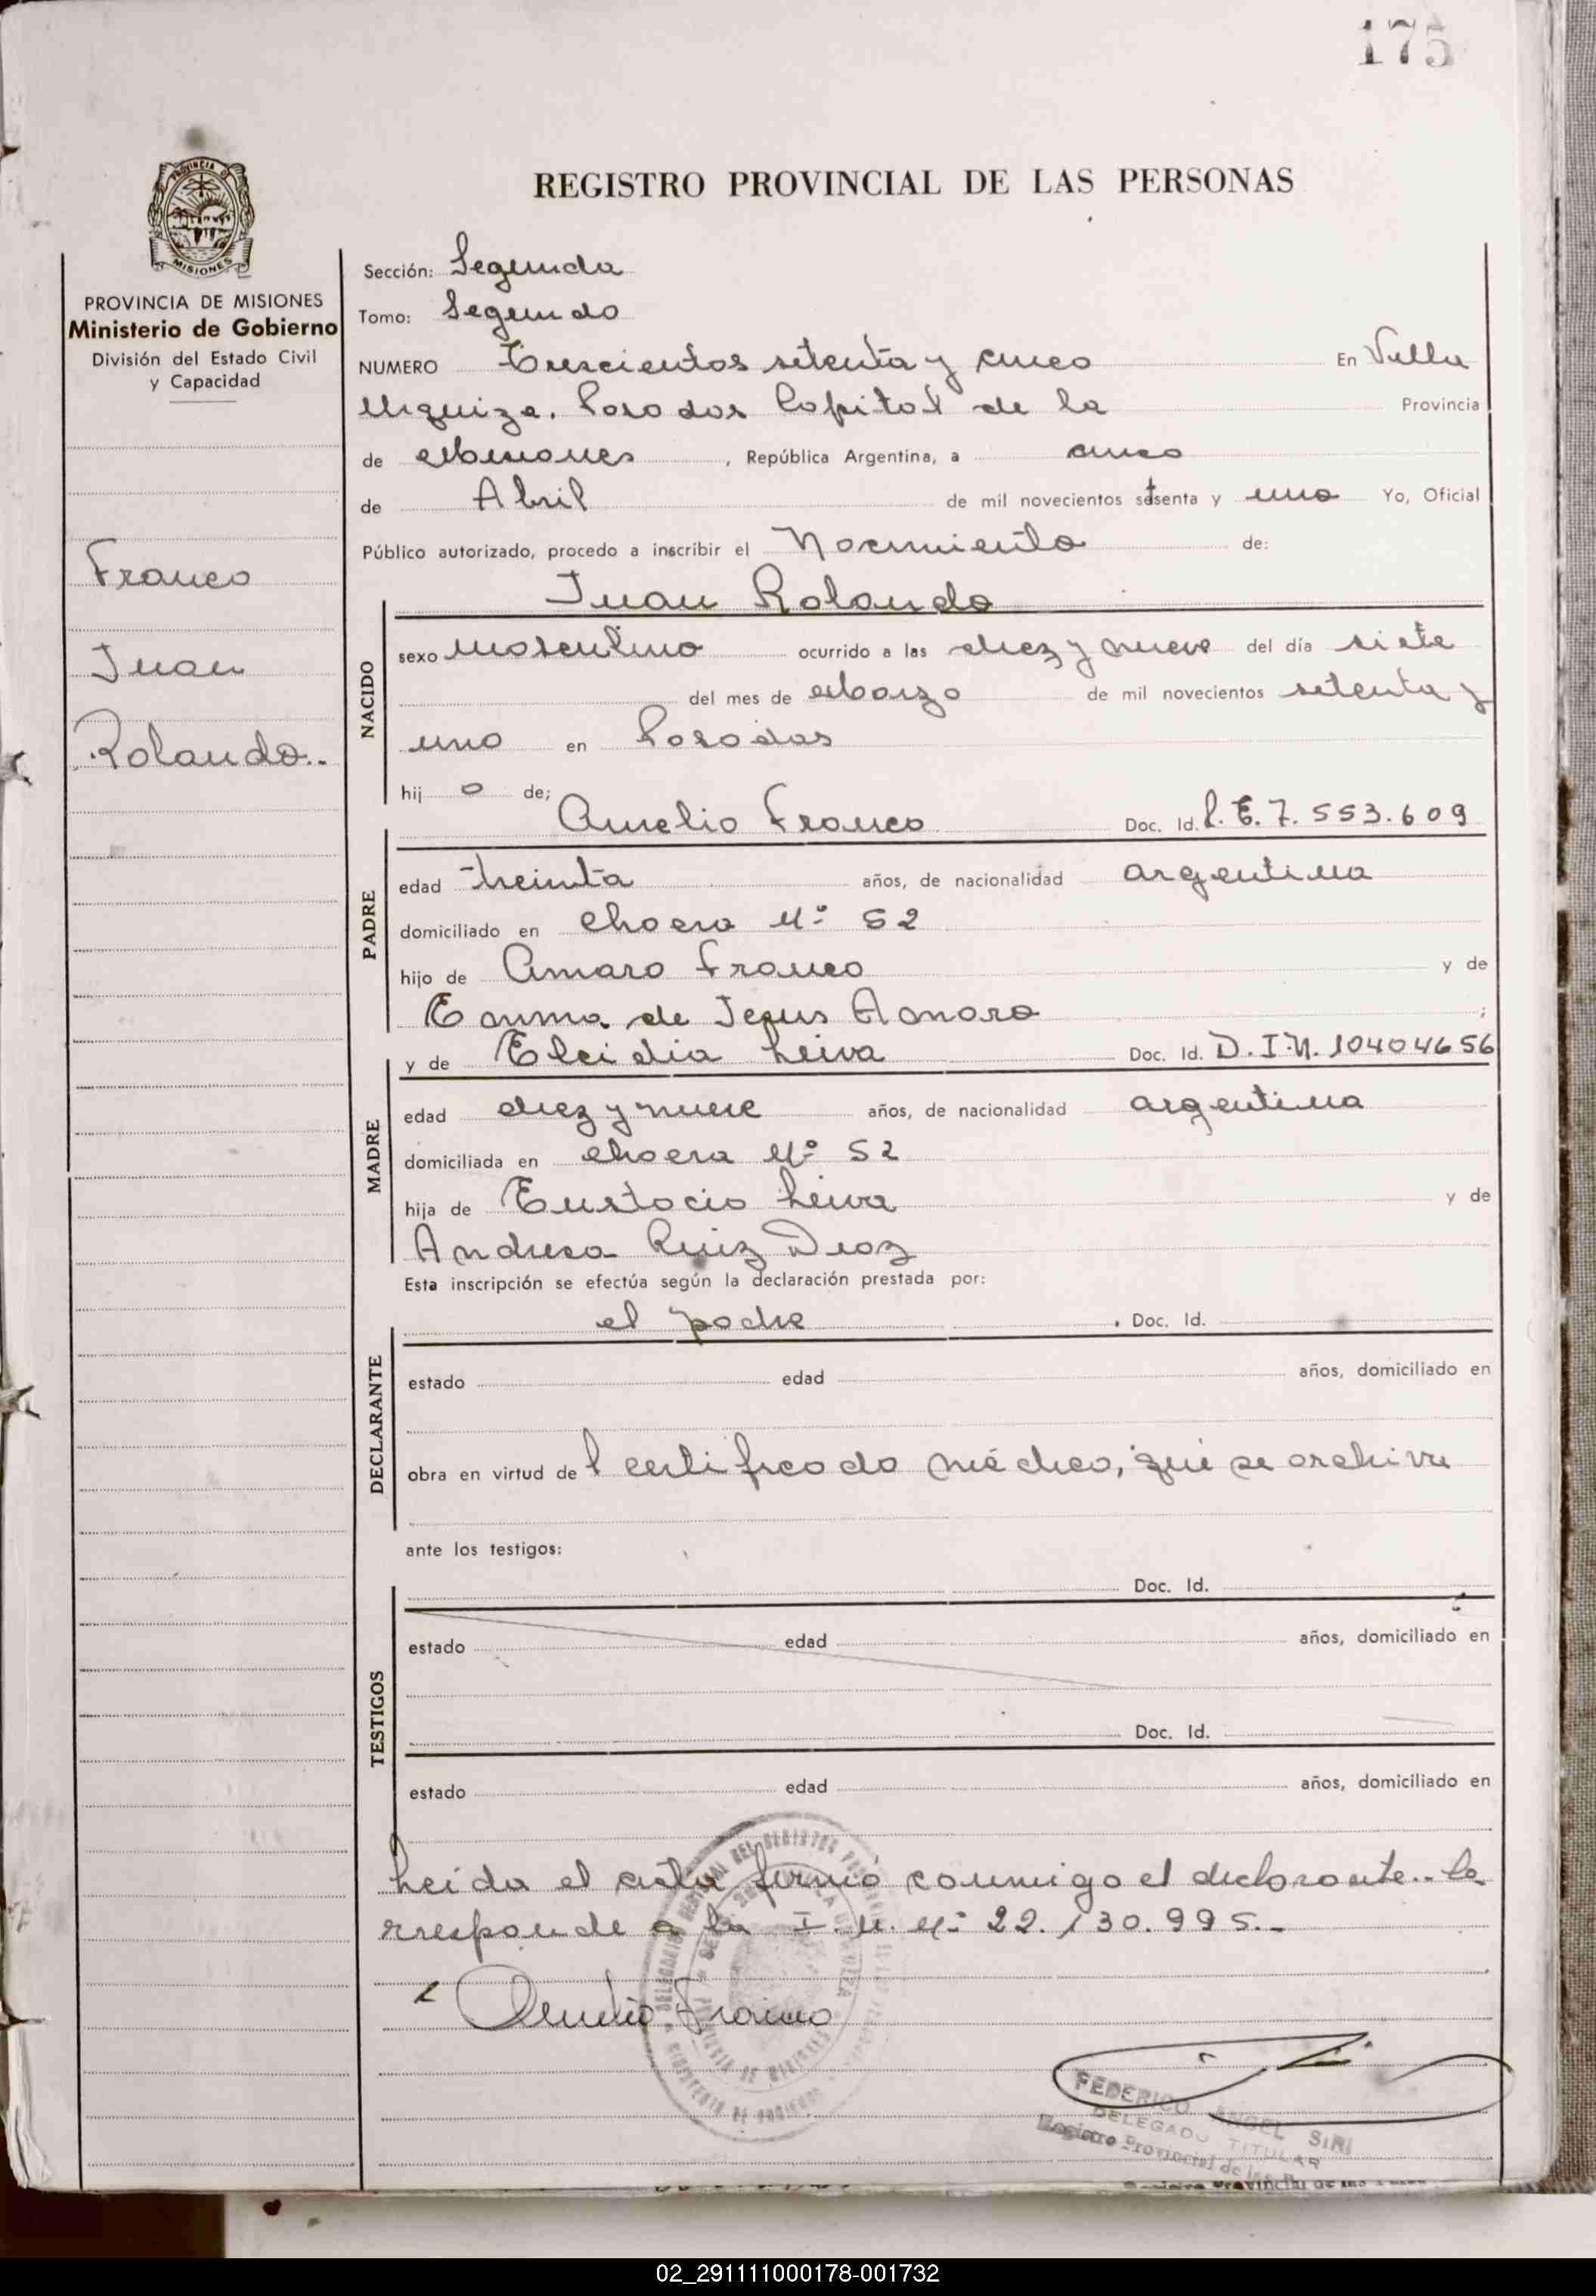 175
REGISTRO PROVINCIAL DE LAS PERSONAS
PROVINCIA DE MISIONES
Ministerio de Gobierno
División del Estado Civil
y Capacidad
Franco
Juan
Rolando..
Sección: Segunda
Tomo: Segundo
NUMERO Trescientos setenta y cinco En Villa
Urquiza. Posadas Capital de la Provincia
de Misiones, República Argentina, a cinco
de Abril de mil novecientos setenta y uno Yo, Oficial
Público autorizado, procedo a inscribir el Nacimiento de:
Juan Rolando
NACIDO
sexo masculino ocurrido a las diez y nueve del día siete
del mes de Marzo de mil novecientos setenta y
uno en Posadas
hij o de;
Aurelio Franco Doc. Id. L.E.7.553.609
PADRE
edad treinta años, de nacionalidad argentina
domiciliado en chacra Nº 52
hijo de Amaro Franco y de
Emma de Jesus ;
y de Elcidia Leiva Doc. Id. D.I.N. 10404656
MADRE
edad diez y nueve años, de nacionalidad argentina
domiciliada en chacra Nº 52
hija de Eustacio Leiva y de
Andresa Ruiz Diaz
Esta inscripción se efectúa según la declaración prestada por:
el padre . Doc. Id.
DECLARANTE
estado edad años, domiciliado en
obra en virtud de l certificado médico, que se archiva
ante los testigos:
Doc. Id.
TESTIGOS
estado edad años, domiciliado en
Doc. Id.
estado edad años, domiciliado en
Leida el acta firmó conmigo el declarante.. Co
rresponde a la I. N. Nº 22.130.995.-
Aurelio Franco
FEDERICO ANGEL SIRI
DELEGADO TITULAR
Registro Provincial de las
02_291111000178-001732